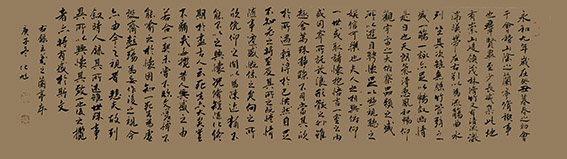 永和九年歲在癸丑暮春之初會
于會稽山陰之蘭亭脩稧事
也群賢畢至少長咸集此地
有崇山峻領茂林脩竹又有清流激
湍暎帶左右引以為流觴曲水
列坐其次雖無絲竹管弦之
盛一觴一詠亦足以暢敘幽情
是日也天朗氣清惠風和暢仰
觀宇宙之大俯察品類之盛
所以遊目騁懷足以極視聽之
娛信可樂也夫人之相與俯仰
一世或取諸懷抱悟言一室之內
或因寄所託放浪形骸之外雖
趣舍萬殊靜躁不同當其欣
於所遇暫得於己快然自足
不知老之將至及其所之既惓情
隨事遷感慨係之矣向之所
欣俛仰之間以為陳迹猶不
能不以之興懷況脩短隨化終
期於盡古人云死生亦大矣豈
不痛哉每攬昔人興感之由
若合一契未嘗不臨文嗟悼不
能喻之於懷固知一死生為虛
誕齊彭殤為妄作後之視今
亦由今之視昔悲夫故列
敘時人錄其所述雖世殊事
異所以興懷其致一也後之攬
者亦將有感於斯文
右錄王羲之蘭亭序
庚子